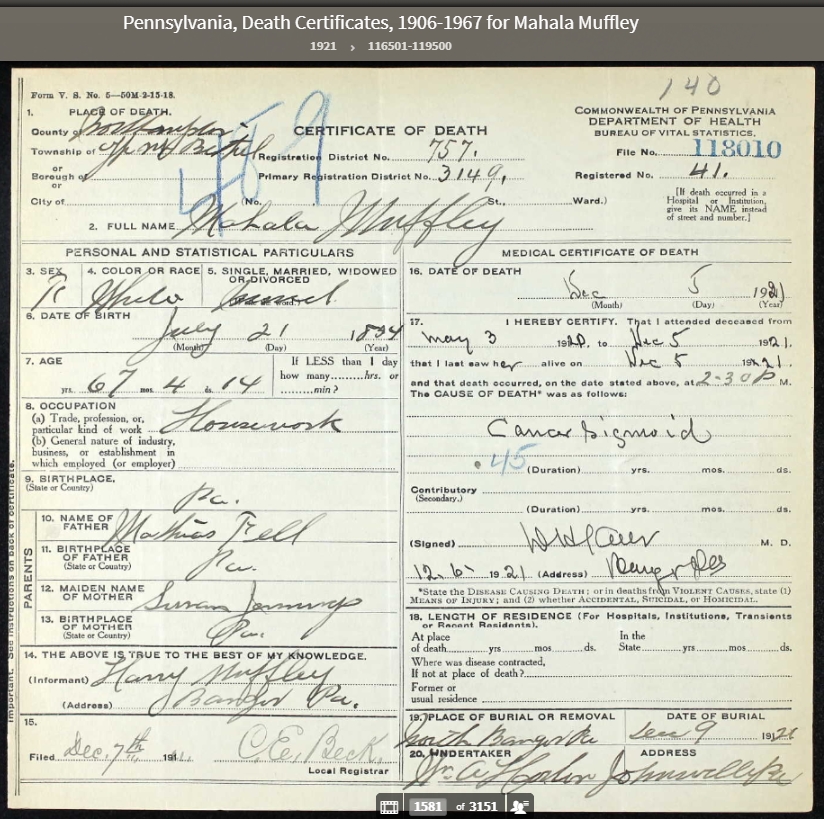 Pennsylvania, Death Certificates, 1906-1967 for Mahala Muffley
1921 › 116501-119500
Form V. S. No. 5—50M-2-15-18.
140
1. PLACE OF DEATH.
County of Northampton
Township of Up Mt Bethel
or
Borough of
or
City of
459
CERTIFICATE OF DEATH
Registration District No. 757.
Primary Registration District No. 3149.
(No. St., Ward.)
COMMONWEALTH OF PENNSYLVANIA
DEPARTMENT OF HEALTH
BUREAU OF VITAL STATISTICS.
File No. 118010
Registered No. 41.
[If death occurred in a
Hospital or Institution,
give its NAME instead
of street and number.]
2. FULL NAME Mahala Muffley
PERSONAL AND STATISTICAL PARTICULARS
3. SEX
F
4. COLOR OR RACE
White
5. SINGLE, MARRIED, WIDOWED
OR DIVORCED
6. DATE OF BIRTH
July 21 18
(Month) (Day) (Year)
7. AGE
67 yrs. 4 mos. 14 ds.
If LESS than 1 day
how many........hrs. or
........min?
8. OCCUPATION
(a) Trade, profession, or,
particular kind of work Housework
(b) General nature of industry,
business, or establishment in
which employed (or employer)
9. BIRTHPLACE,
(State or Country)
Pa.
PARENTS
10. NAME OF
FATHER Mathias Fell
11. BIRTHPLACE
OF FATHER
(State or Country) Pa.
12. MAIDEN NAME
OF MOTHER Susan Jennings
13. BIRTHPLACE
OF MOTHER
(State or Country) Pa.
14. THE ABOVE IS TRUE TO THE BEST OF MY KNOWLEDGE.
(Informant) Harry Muffley
(Address) Bangor Pa.
15.
Filed Dec. 7th, 191 C.E. Beck.
Local Registrar
Important. See instructions on back of certificate.
MEDICAL CERTIFICATE OF DEATH
16. DATE OF DEATH
Dec 5 1921
(Month) (Day) (Year)
17. I HEREBY CERTIFY. That I attended deceased from
May 3 1920, to Dec 5 1921.
that I last saw her alive on Dec 5 1921.
and that death occurred, on the date stated above, at 2-30 P M.
The CAUSE OF DEATH* was as follows:
Cancer Sigmoid
45
(Duration) yrs. mos. ds.
Contributory
(Secondary.)
(Duration) yrs. mos. ds.
(Signed) M. D.
12.6. 1921 (Address)
*State the DISEASE CAUSING DEATH; or in deaths from VIOLENT CAUSES, state (1)
MEANS OF INJURY; and (2) whether ACCIDENTAL, SUICIDAL, or HOMICIDAL.
18. LENGTH OF RESIDENCE (For Hospitals, Institutions, Transients
or Recent Residents).
At place
of death yrs mos. ds.
In the
State yrs mos ds.
Where was disease contracted,
If not at place of death?
Former or
usual residence
19. PLACE OF BURIAL OR REMOVAL
North Bangor Pa
DATE OF BURIAL
Dec 9 1921
20. UNDERTAKER
Wm. A
ADDRESS
Johnsonville Pa
1581 of 3151